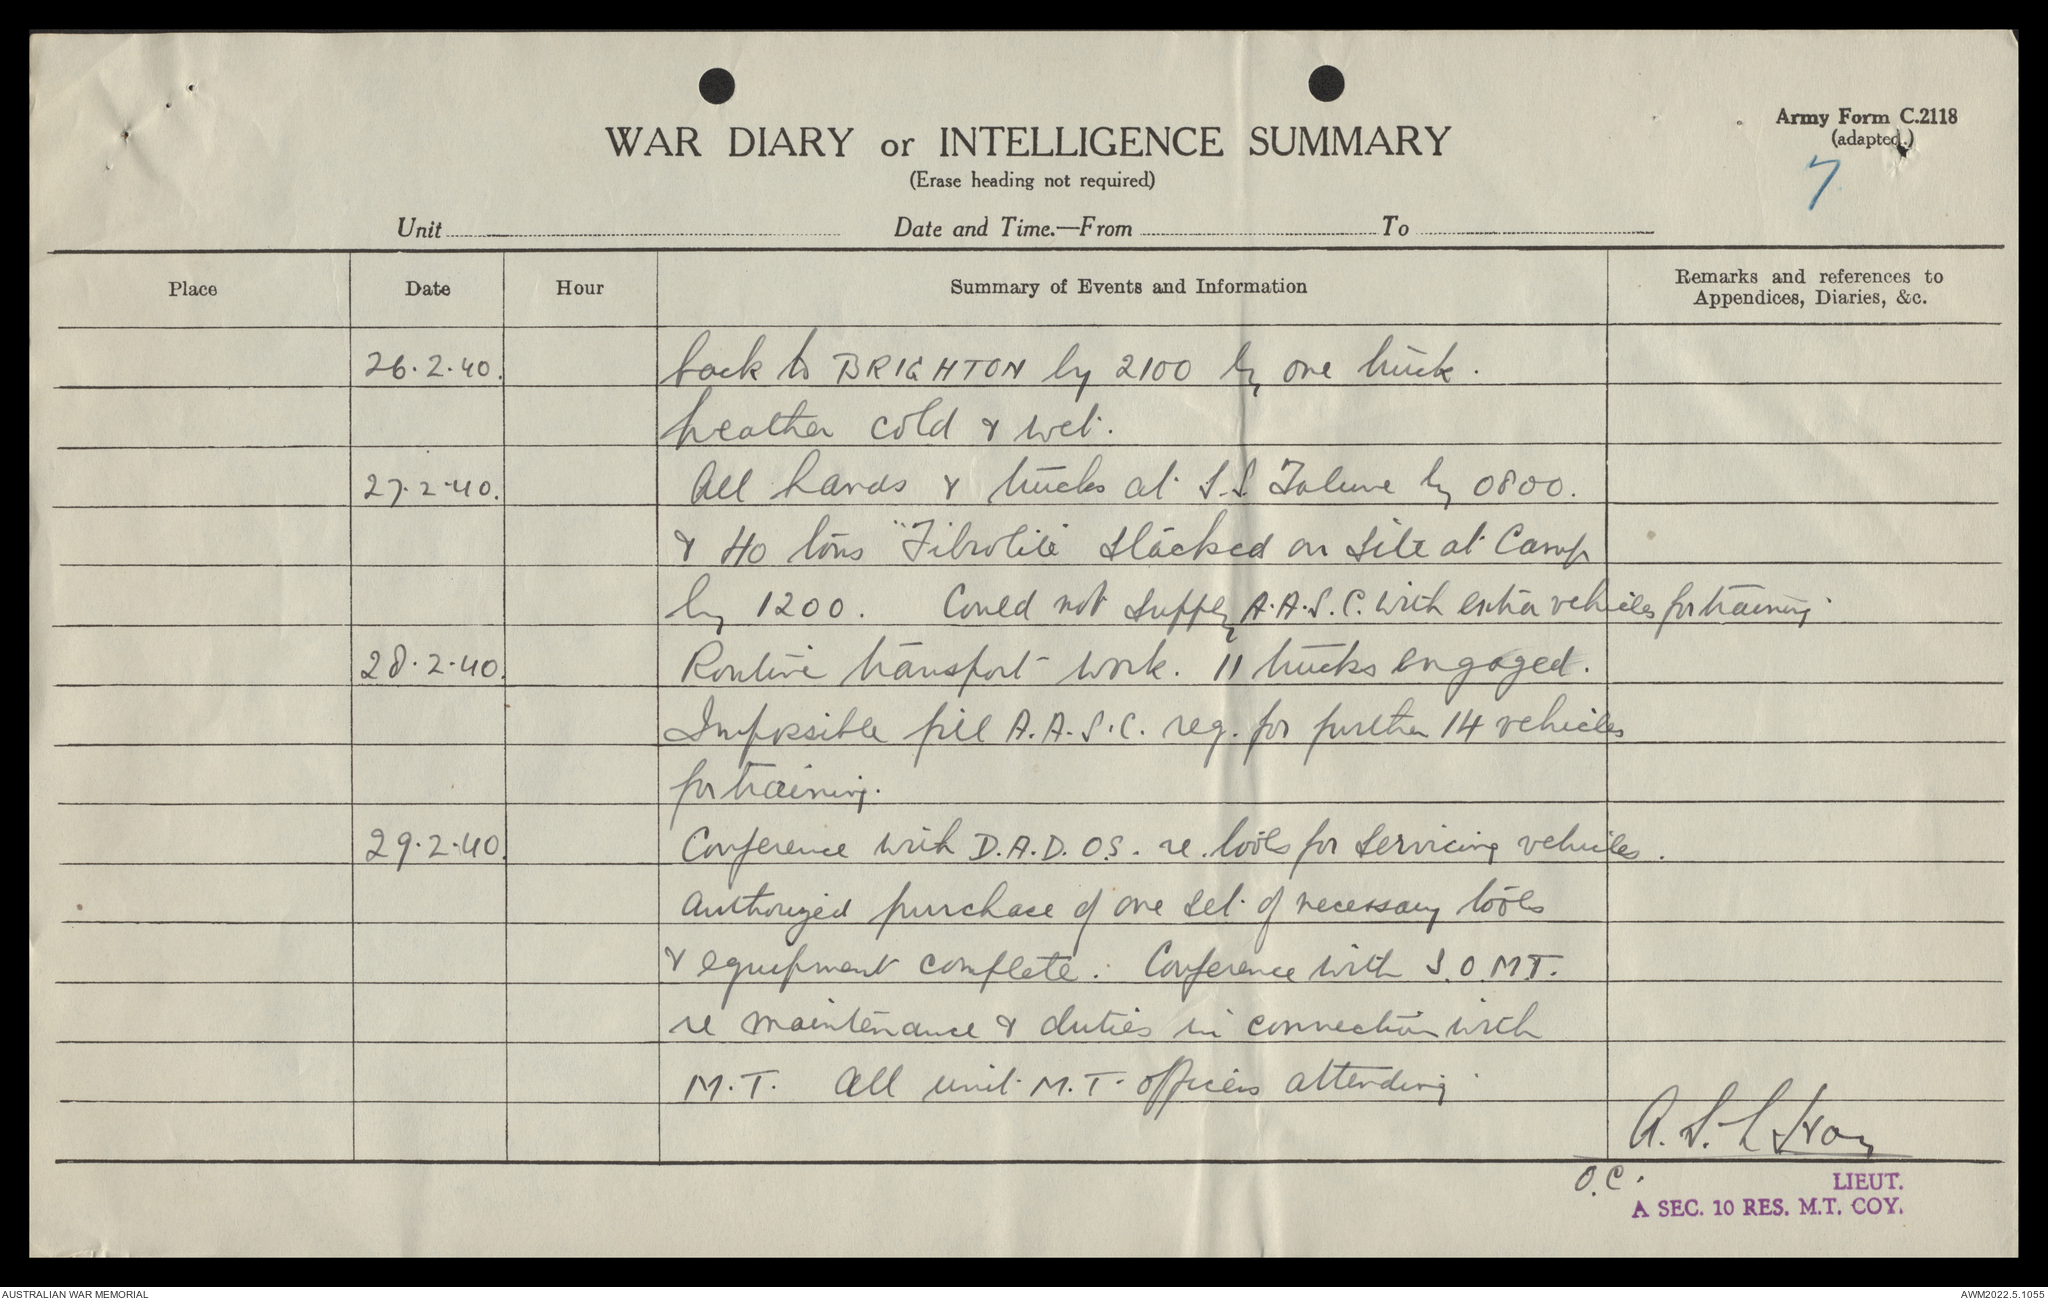 Army Form C.2118
(adapted.)
7
WAR DIARY or INTELLIGENCE SUMMARY
(Erase heading not required)
Unit
Date and Time.—From
To
Place
Date
Hour
Summary of Events and Information
Remarks and references to
Appendices, Diaries, &c.
26.2.40. back to BRIGHTON by 2100 by one truck.
Weather cold & wet.
27.2.40. All hands & trucks at S.S. Talune by 0800.
& 40 tons "Fibrolite" stacked on site at Camp
by 1200. Could not supply A.A.S.C. with extra vehicles for training
28.2.40. Routine transport work. 11 trucks engaged.
Impossible fill A.A.S.C. req. for further 14 vehicles
for training.
29.2.40. Conference with D.A.D.O.S. re. tools for servicing vehicles.
Authorized purchase of one set of necessary tools
& equipment complete. Conference with S.O.M.T.
re maintenance & duties in connection with
M.T. All unit M.T. officers attending
A. S. L
O.C.
LIEUT.
A SEC. 10 RES. M.T. COY.
AUSTRALIAN WAR MEMORIAL
AWM2022.5.1055